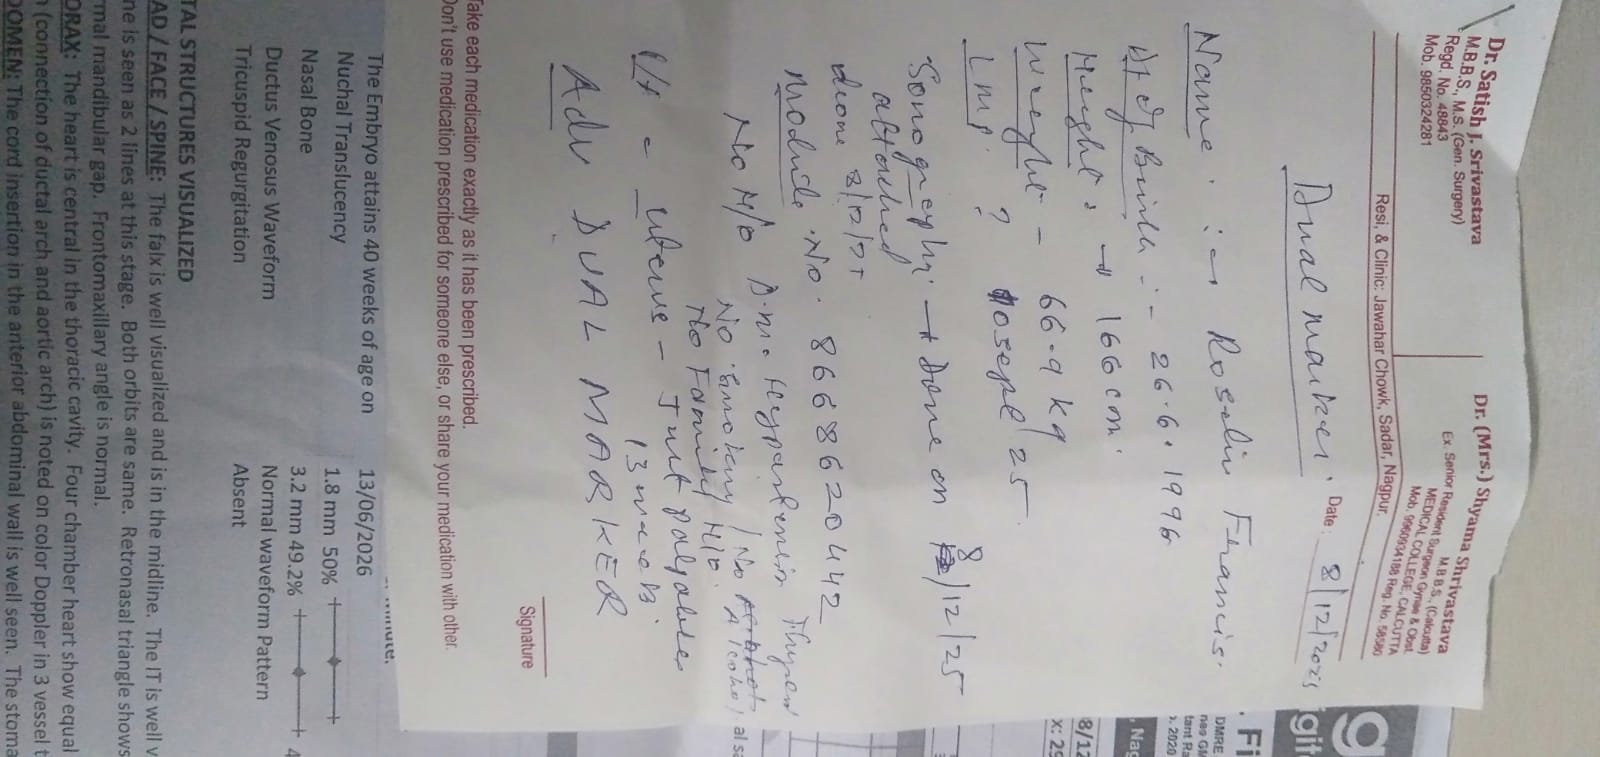 Dr. Satish J. Srivastava
M.B.B.S., M.S. (Gen. Surgery)
Regd. No. 48843
Mob. 9850324281
Dr. (Mrs.) Shyama Shrivastava
M.B.B.S., (Calcutta)
Ex. Senior Resident Surgeon Gynae & Obst.
MEDICAL COLLEGE, CALCUTTA
Mob. 9960934188 Reg. No. 58580
Resi, & Clinic: Jawahar Chowk, Sadar, Nagpur.
Date : 8/12/2025
Dual marker.
Name :→ Roselin Francis.
Dt of Birth :- 26.6.1996
Height: → 166 cm.
Weight - 66.9 kg
LMP. ? sept/25.
Sonography. → Done on 8/12/25
attached
done
Mobile No. 8668620442
No H/o D.m. Hypertensin Thyroid
No Smoking / No Alcohol
No Family H/o.
Ut - uterus - Just palpable
13 weeks.
Adv DUAL MARKER
Signature
Take each medication exactly as it has been prescribed.
Don't use medication prescribed for someone else, or share your medication with other.
The Embryo attains 40 weeks of age on 13/06/2026
Nuchal Translucency 1.8 mm 50%
Nasal Bone 3.2 mm 49.2%
Ductus Venosus Waveform Normal waveform Pattern
Tricuspid Regurgitation Absent
TAL STRUCTURES VISUALIZED
AD / FACE / SPINE: The falx is well visualized and is in the midline. The IT is well v
ne is seen as 2 lines at this stage. Both orbits are same. Retronasal triangle shows
rmal mandibular gap. Frontomaxillary angle is normal.
ORAX: The heart is central in the thoracic cavity. Four chamber heart show equal
(connection of ductal arch and aortic arch) is noted on color Doppler in 3 vessel t
DOMEN: The cord insertion in the anterior abdominal wall is well seen. The stoma
g
git
. Fi
DMRE
nes GM
tant Ra
. 2020
, Nag
8/12
x: 29
al sa